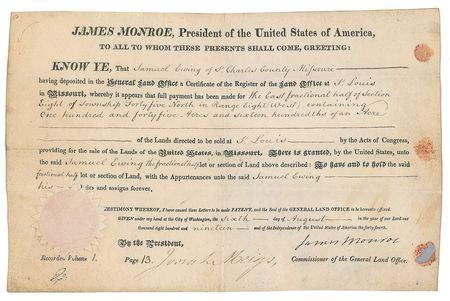 JAMES MONROE, President of the United States of America,
TO ALL TO WHOM THESE PRESENTS SHALL COME, GREETING:
KNOW YE, That Samuel Ewing of St Charles County Missouri
having deposited in the General Land Office a Certificate of the Register of the Land Office at St. Louis
in Missouri, whereby it appears that full payment has been made for the East fractional half of Section
Eight of Township Forty five North in Range Eight (West) containing
One hundred and forty five Acres and Sixteen hundredths of an Acre
of the Lands directed to be sold at St Louis by the Acts of Congress,
providing for the sale of the Lands of the United States, in Missouri, There is granted, by the United States, unto
the said Samuel Ewing the fractional half lot or section of Land above described: To have and to hold the said
fractional half lot or section of Land, with the Appurtenances unto the said Samuel Ewing
his eirs and assigns forever,
TESTIMONY WHEREOF, I have caused these Letters to be made PATENT, and the Seal of the GENERAL LAND OFFICE to be hereunto affixed.
GIVEN under my hand at the City of Washington, the Sixth day of August in the year of our Lord one
thousand eight hundred and nineteen and of the Independence of the United States of America the forty-fourth.
By the President, James Monroe
Recorded Volume 1. Page 13. Josiah Meigs, Commissioner of the General Land Office.